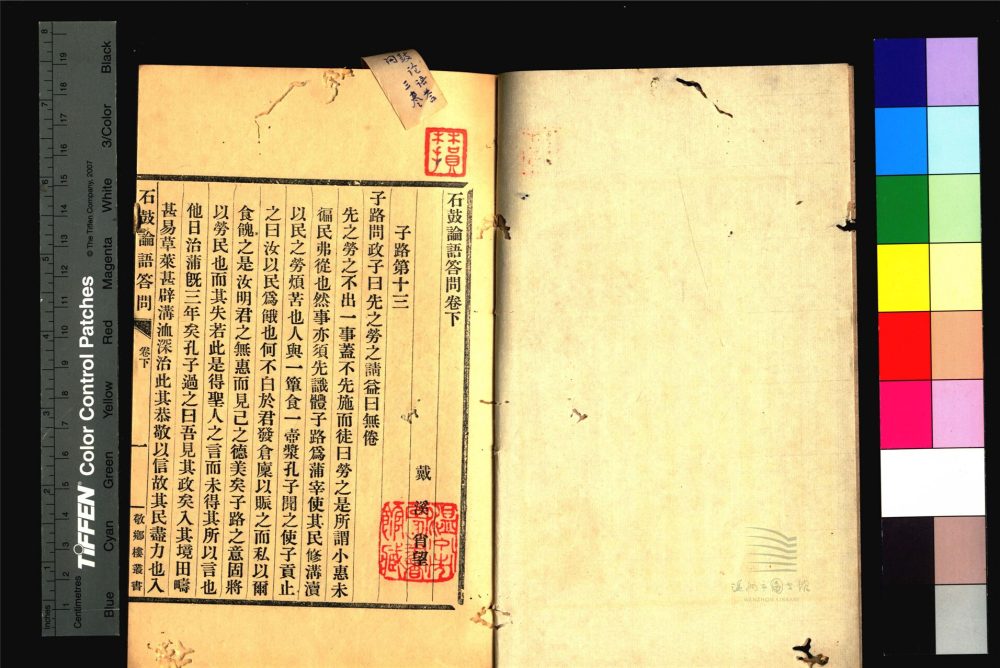 石鼓論語答問卷下
戴溪肖望
子路第十三
子路問政子曰先之勞之請益曰無倦
先之勞之不出一事蓋不先施而徒曰勞之是所謂小惠未
徧民弗從也然事亦須先識體子路爲蒲宰使其民修溝瀆
以民之勞煩苦也人與一簞食一壺漿孔子聞之使子貢止
之曰汝以民爲餓也何不白於君發倉廩以賑之而私以爾
食餽之是汝明君之無惠而見己之德美矣子路之意固將
以勞民也而其失若此是得聖人之言而未得其所以言也
他日治蒲旣三年矣孔子過之曰吾見其政矣入其境田疇
甚易草萊甚辟溝洫深治此其恭敬以信故其民盡力也入
石鼓論語答問
卷下
一
敬鄉樓叢書
鼓論語答
問三卷
溫州市圖書館
WENZHOU LIBRARY
Inches
Centimetres
TIFFEN® Color Control Patches
© The Tiffen Company, 2007
Blue
Cyan
Green
Yellow
Red
Magenta
White
3/Color
Black